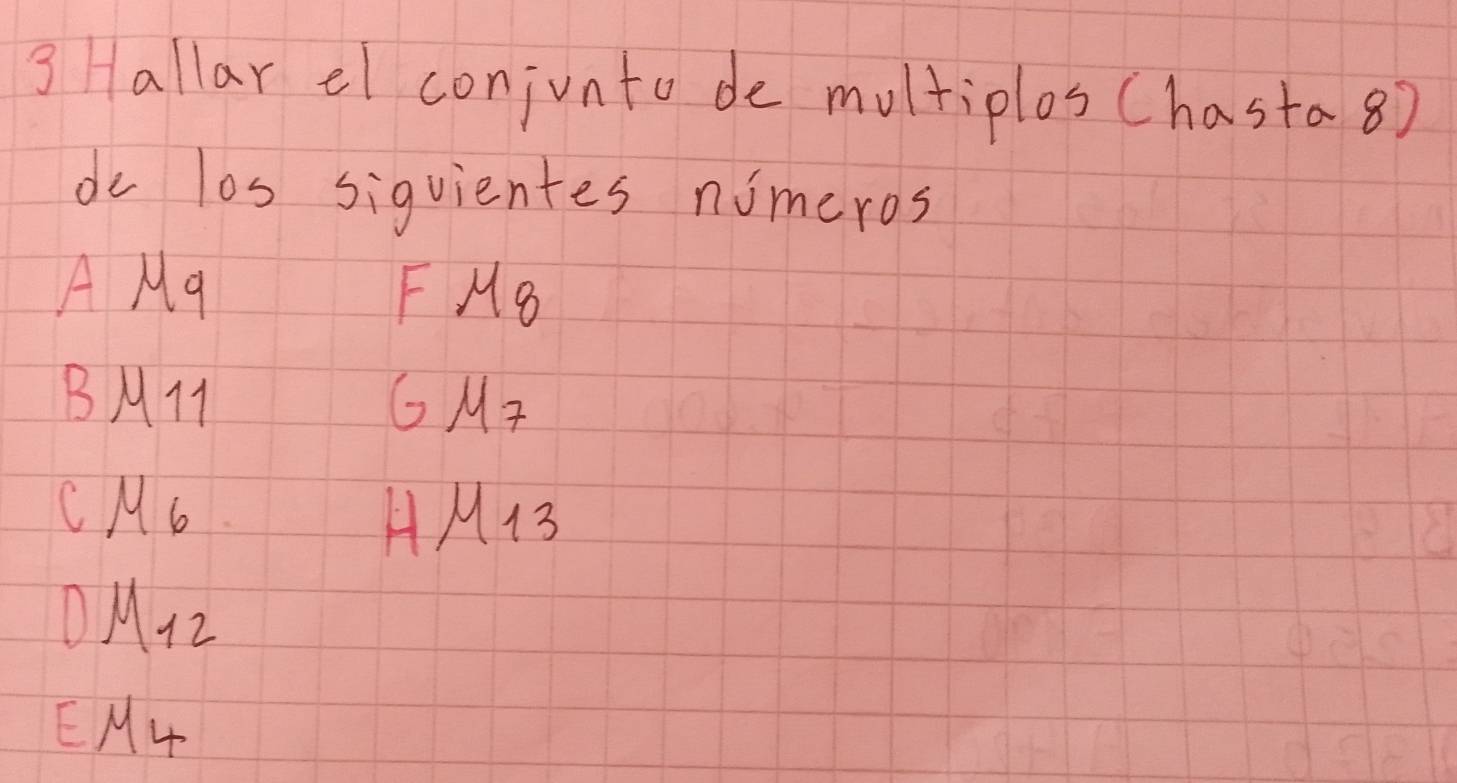 3 Hallar el conjunto de multiplos (hasta 8)
de los siguientes números
A M9 F M8
B M11 G M7
C M6 H M13
D M12
E M4